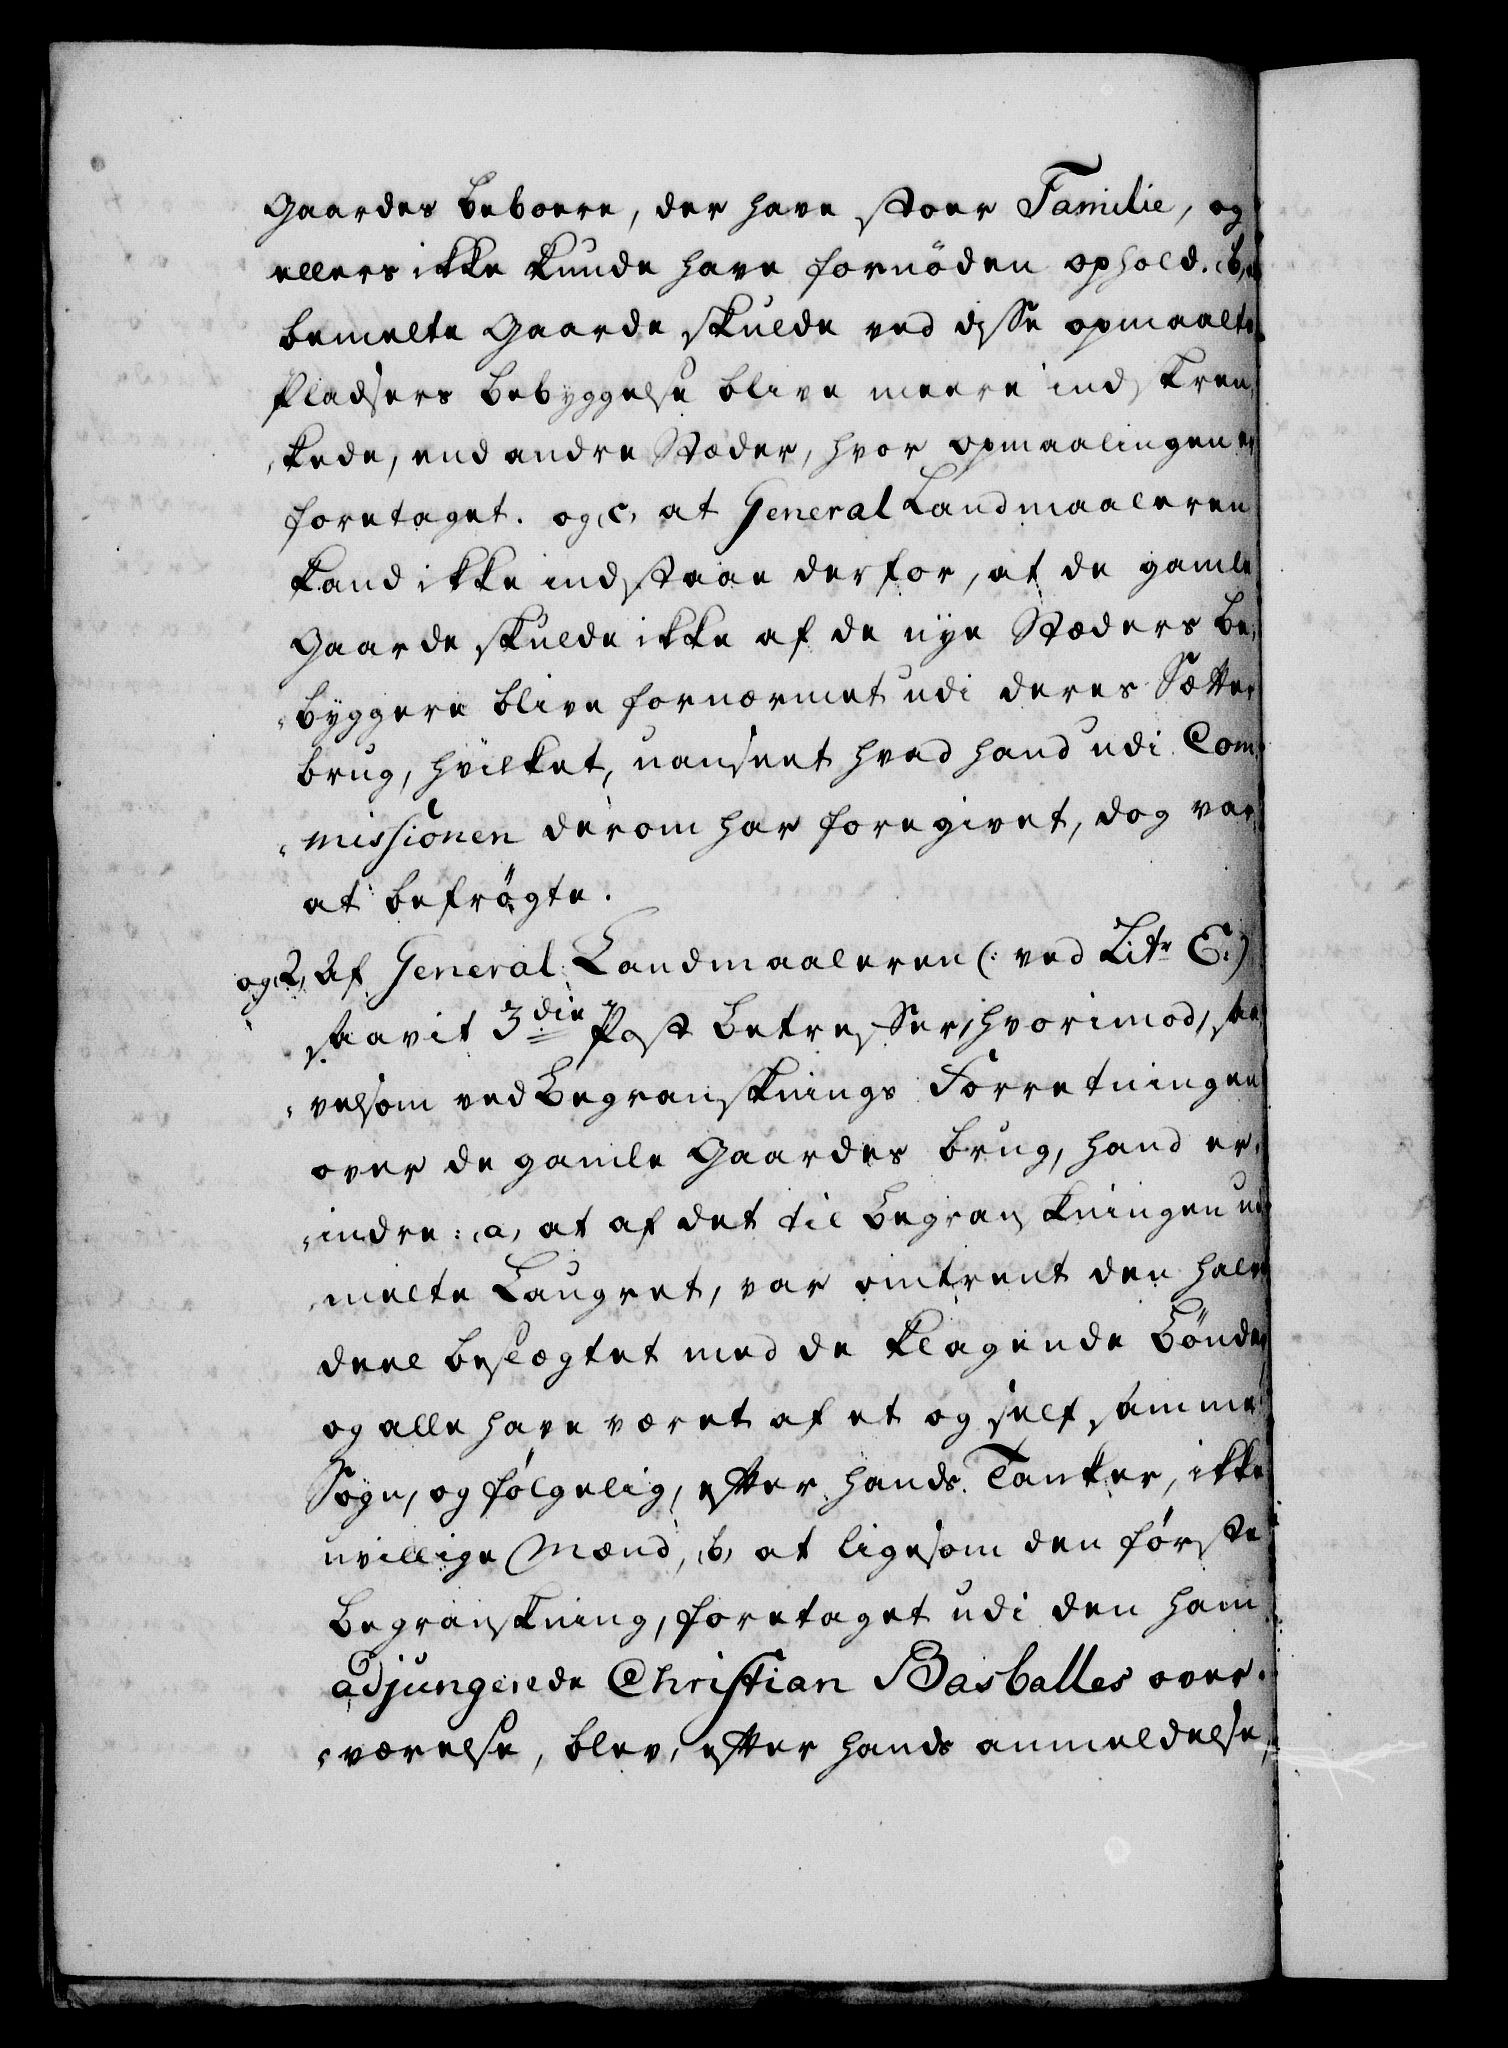 Gaardes beboere, der have stoer Familie, og
ellers ikke kunde have fornöden ophold. (b,
bemelte Gaarde skulde ved disse opmaalte
Pladsers bebyggelse blive meere indskren„
„kede, end andre Stæder, hvor opmaalingen er
foretaget. og (c, at General Landmaaleren
kand ikke indstaae derfor, at de gamle
Gaarde skulde ikke af de nye Stæders be„
„byggere blive fornærmet udi deres Sætter
brug, hvilket, uanseet hvad hand udi Com„
„missionen derom har foregivet, dog var
at befrögte.
og 2, Af General Landmaaleren (: ved Litr E:)
saavit 3die Post betreffer, hvorimod, saa
„velsom ved Begransknings Forretningen
over de gamle Gaardes brug, hand er„
„indre: (a, at af det til Begranskningen ud
„melte Laugret, var omtrent den halve
deel beslægtet med de klagende Bönder,
og alle have været af et og self samme
Sogn, og fölgelig, efter hands Tanker, ikke
uvillige Mænd, (b, at ligesom den förste
Begranskning, foretaget udi den ham
adjungerede Christian Basballes over„
„værelse, blev, efter hands anmeldelse,